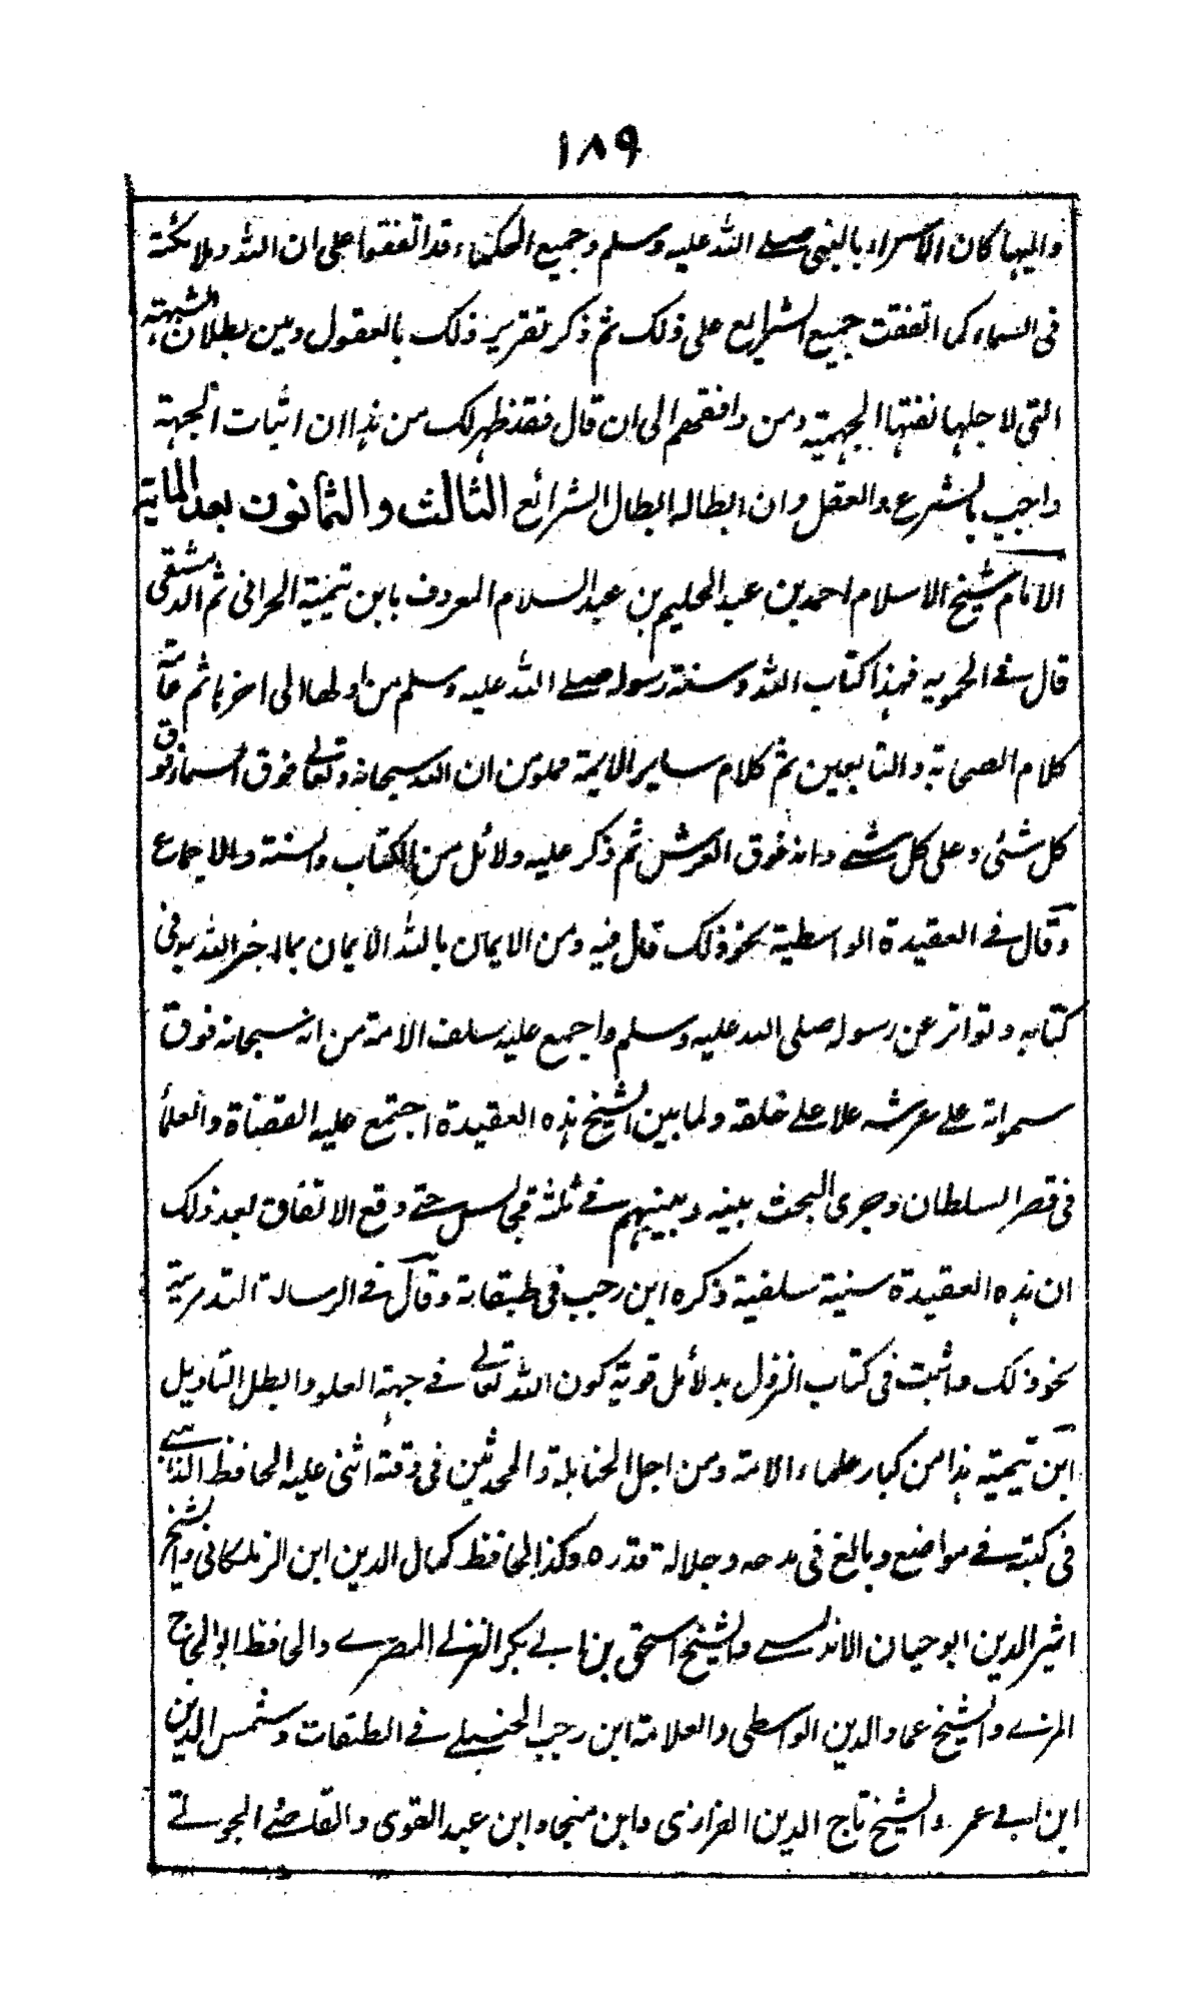 ١٨٩
واليها كان الاسراء بالنبي صلى الله عليه وسلم وجميع الحكماء قد اتفقوا على ان الله وملائكته
فى السماء كما اتفقت جميع الشرايع على ذلك ثم ذكر تقرير ذلك بالمعقول وبين بطلان الشبهة
التى لاجلها نفتها الجهمية ومن وافقهم الى ان قال فقد ظهر لك من هذا ان اثبات الجهة
واجب بالشرع والعقل وان ابطاله ابطال الشرائع الثالث والثمانون بعد الماية
الامام شيخ الاسلام احمد بن عبد الحليم بن عبد السلام المعروف بابن تيمية الحرانى ثم الدمشقى
قال في الحموية فهذا كتاب الله وسنة رسوله صلى الله عليه وسلم من اولها الى اخرها ثم عامة
كلام الصحابة والتابعين ثم كلام ساير الايمة مملو من ان الله سبحانه وتعالى فوق السماء وفوق
كل شئى وعلى كل شئ وانه فوق العرش ثم ذكر عليه دلائل من الكتاب والسنة والاجماع
وقال في العقيدة الواسطية بنحو ذلك قال فيه ومن الايمان بالله الايمان بما اخبر الله به فى
كتابه وتواتر عن رسوله صلى الله عليه وسلم واجمع عليه سلف الامة من انه سبحانه فوق
سمواته على عرشه علا على خلقه ولما بين الشيخ هذه العقيدة اجتمع عليه القضاة والعلماء
فى قصر السلطان وجرى البحث بينه وبينهم في ثلثة مجالس حتى وقع الاتفاق بعد ذلك
ان هذه العقيدة سنية سلفية ذكره ابن رجب فى طبقاته وقال في الرسالة التدمرية
نحو ذلك واثبت فى كتاب النزول بدلائل قوية كون الله تعالى في جهة العلو وابطل التاويل
ابن تيمية هذا من كبار علماء الامة ومن اجل الحنابلة والمحدثين فى وقته اثنى عليه الحافظ الذهبي
فى كتبه في مواضع وبالغ فى مدحه وجلالة قدره وكذا الحافظ كمال الدين ابن الزملكانى والشيخ
اثير الدين ابو حيان الاندلسي والشيخ اسحق بن ابي بكر التركي المصري والحافظ ابو الحجاج
المزي والشيخ عماد الدين الواسطى والعلامة ابن رجب الحنبلي في الطبقات وشمس الدين
ابن ابي عمر والشيخ تاج الدين الفزارى وابن منجا وابن عبد القوى والقاضي الجوئي